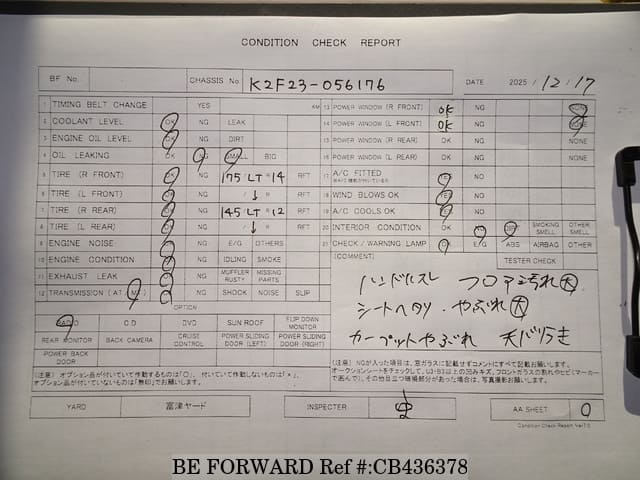 CONDITION CHECK REPORT
BF No. CHASSIS No K2F23-056176 DATE 2025 / 12 / 17
1 TIMING BELT CHANGE YES KM
2 COOLANT LEVEL OK NG LEAK
3 ENGINE OIL LEVEL OK NG DIRT
4 OIL LEAKING OK NG SMALL BIG
5 TIRE (R FRONT) OK NG 175/LT R14 RFT
6 TIRE (L FRONT) OK NG / ↓ R RFT
7 TIRE (R REAR) OK NG 145/LT R12 RFT
8 TIRE (L REAR) OK NG / ↓ R RFT
9 ENGINE NOISE NG E/G OTHERS
10 ENGINE CONDITION NG IDLING SMOKE
11 EXHAUST LEAK NG MUFFLER RUSTY MISSING PARTS
12 TRANSMISSION (AT M) NG SHOCK NOISE SLIP
OPTION
RADIO CD DVD SUN ROOF FLIP DOWN MONITOR
REAR MONITOR BACK CAMERA CRUISE CONTROL POWER SLIDING DOOR (LEFT) POWER SLIDING DOOR (RIGHT)
POWER BACK DOOR
(注意) オプション品が付いていて作動するものは「〇」、付いていて作動しないものは「×」、
オプション品が付いていないものは「無印」でお願いします。
13 POWER WINDOW (R FRONT) OK NG NONE
14 POWER WINDOW (L FRONT) OK NG NONE
15 POWER WINDOW (R REAR) OK NG NONE
16 POWER WINDOW (L REAR) OK NG NONE
17 A/C FITTED YES NO
18 WIND BLOWS OK YES NO
19 A/C COOLS OK YES NO
20 INTERIOR CONDITION OK NG DIRT SMOKING SMELL OTHER SMELL
21 CHECK / WARNING LAMP OK E/G ABS AIRBAG OTHER
(COMMENT) TESTER CHECK
ハンドルスレ フロア汚れ大
シートヘタリ・やぶれ大
カーペットやぶれ 天バリうき
(注意) NGが入った項目は、窓ガラスに記載せずコメントにすべて記載お願いします。
YARD 富津ヤード INSPECTER AA SHEET 0
Condition Check Report Ver7.0
BE FORWARD Ref #:CB436378